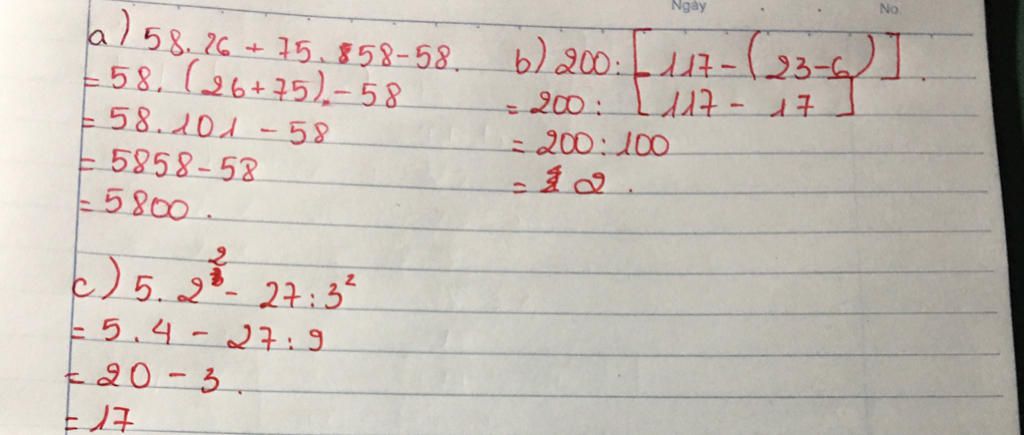 Ngày No.
a) 58.26 + 75.58 - 58.
= 58. (26+75) - 58
= 58.101 - 58
= 5858 - 58
= 5800.
b) 200: [117 - (23-6)].
= 200: [117 - 17]
= 200:100
= 2.
c) 5.2² - 27:3²
= 5.4 - 27:9
= 20 - 3.
= 17